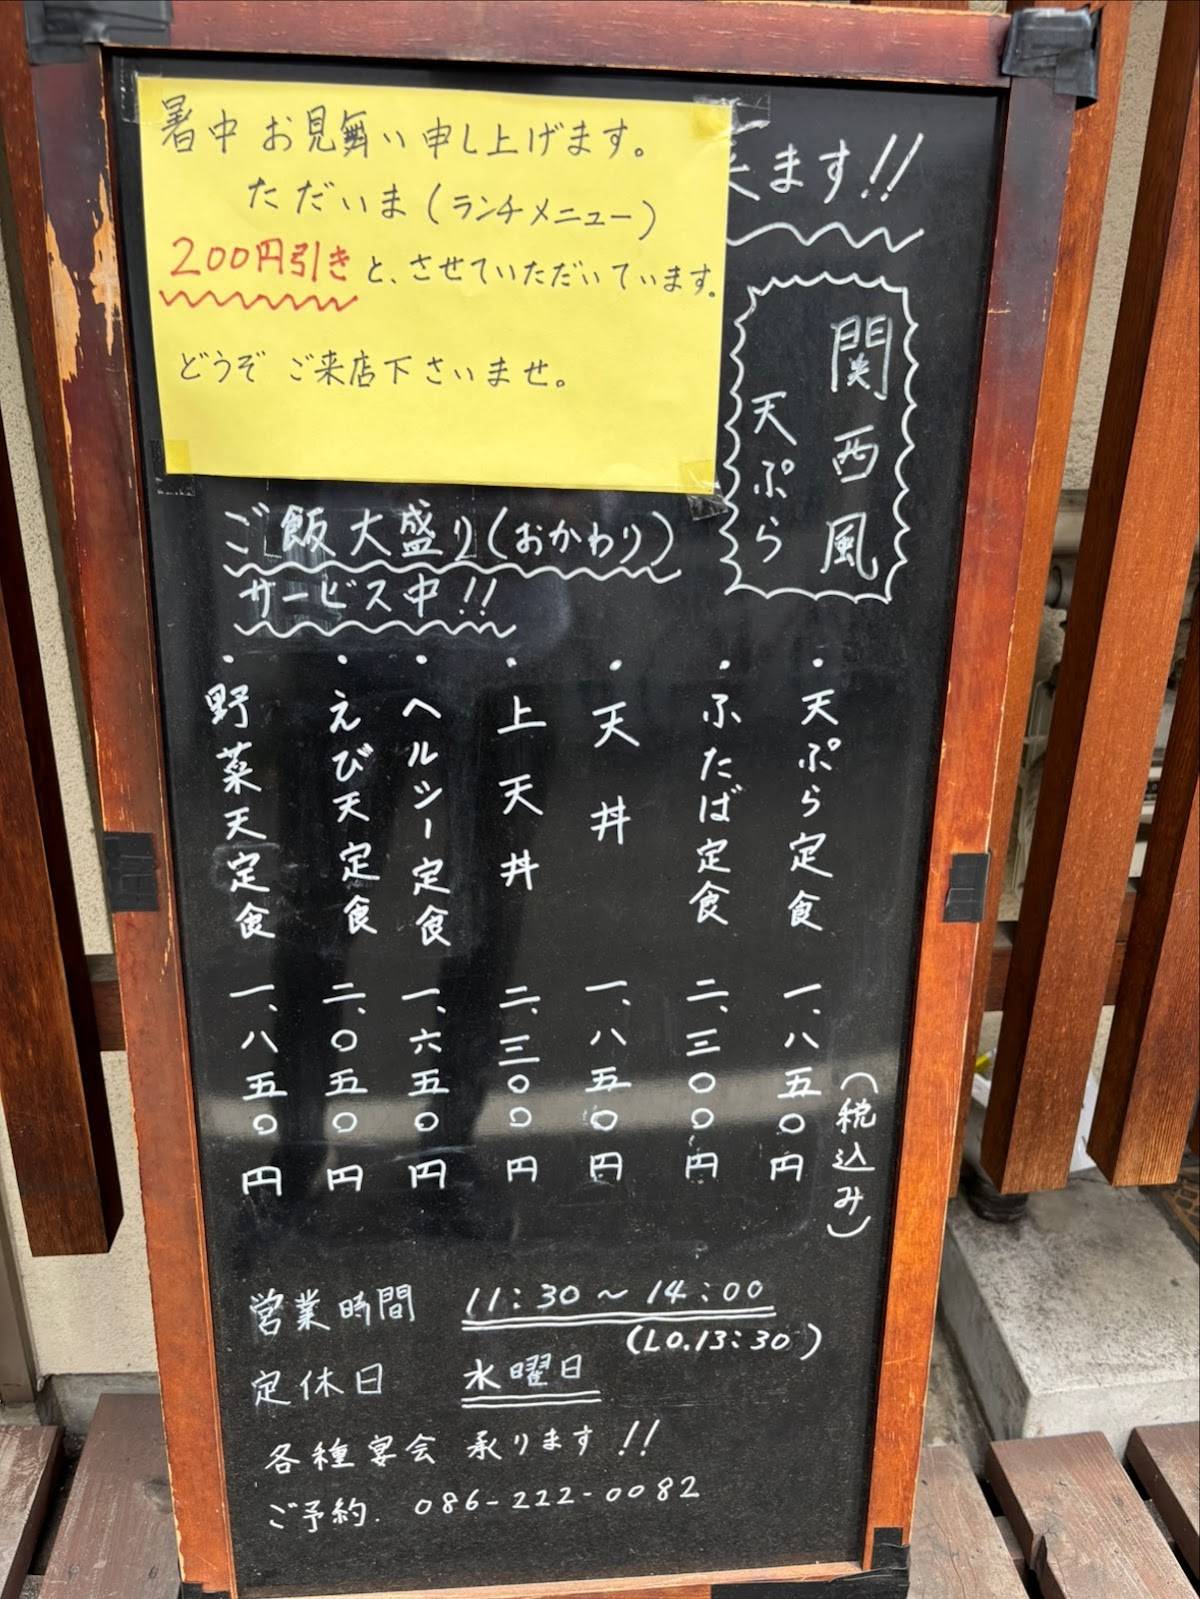 暑中お見舞い申し上げます。
ただいま(ランチメニュー)
200円引きと、させていただいています。
どうぞ ご来店下さいませ。
ます!!
関西風
天ぷら
ご飯大盛り(おかわり)
サービス中!!
・天ぷら定食 一、八五〇円
(税込み)
・ふたば定食 二、三〇〇円
・天丼 一、八五〇円
・上天丼 二、三〇〇円
・ヘルシー定食 一、六五〇円
・えび天定食 二、〇五〇円
・野菜天定食 一、八五〇円
営業時間 11:30~14:00
(LO.13:30)
定休日 水曜日
各種宴会 承ります!!
ご予約. 086-222-0082